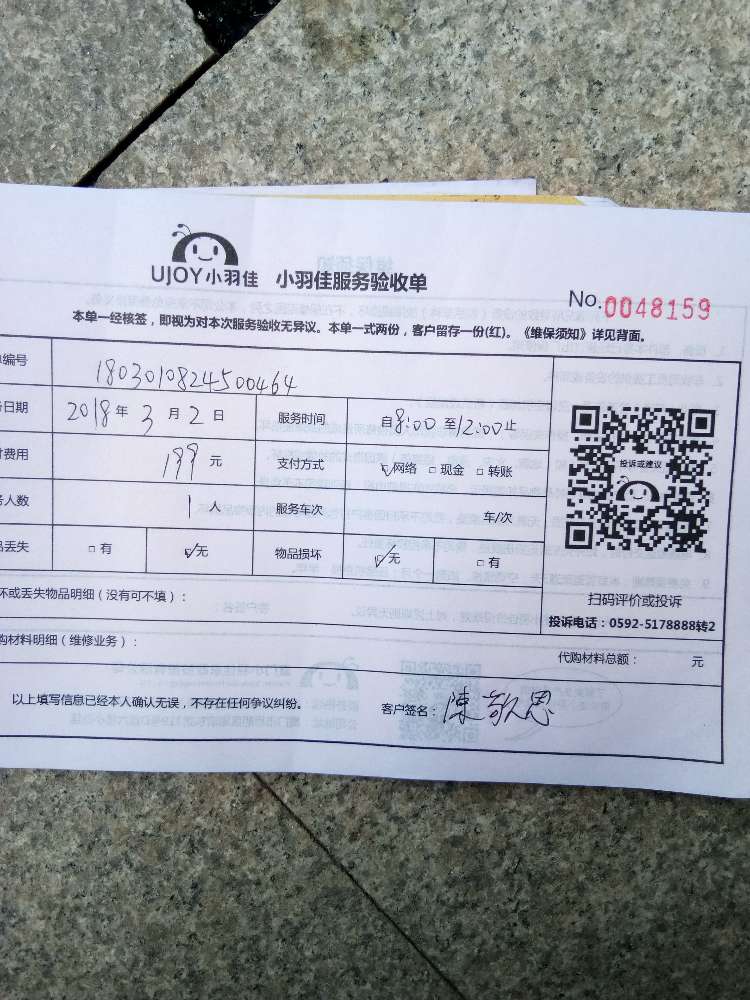 UJOY小羽佳 小羽佳服务验收单
No.0048159
本单一经核签，即视为对本次服务验收无异议。本单一式两份，客户留存一份(红)。《维保须知》详见背面。
编号 1803010824500464
日期 2018年3月2日 服务时间 自8:00至12:00止
费用 199元 支付方式 ☑网络 □现金 □转账
人数 1人 服务车次 车/次
丢失 □有 ☑无 物品损坏 ☑无 □有
投诉或建议
扫码评价或投诉
投诉电话：0592-5178888转2
坏或丢失物品明细（没有可不填）：
购材料明细（维修业务）： 代购材料总额： 元
以上填写信息已经本人确认无误，不存在任何争议纠纷。 客户签名：陳敬思